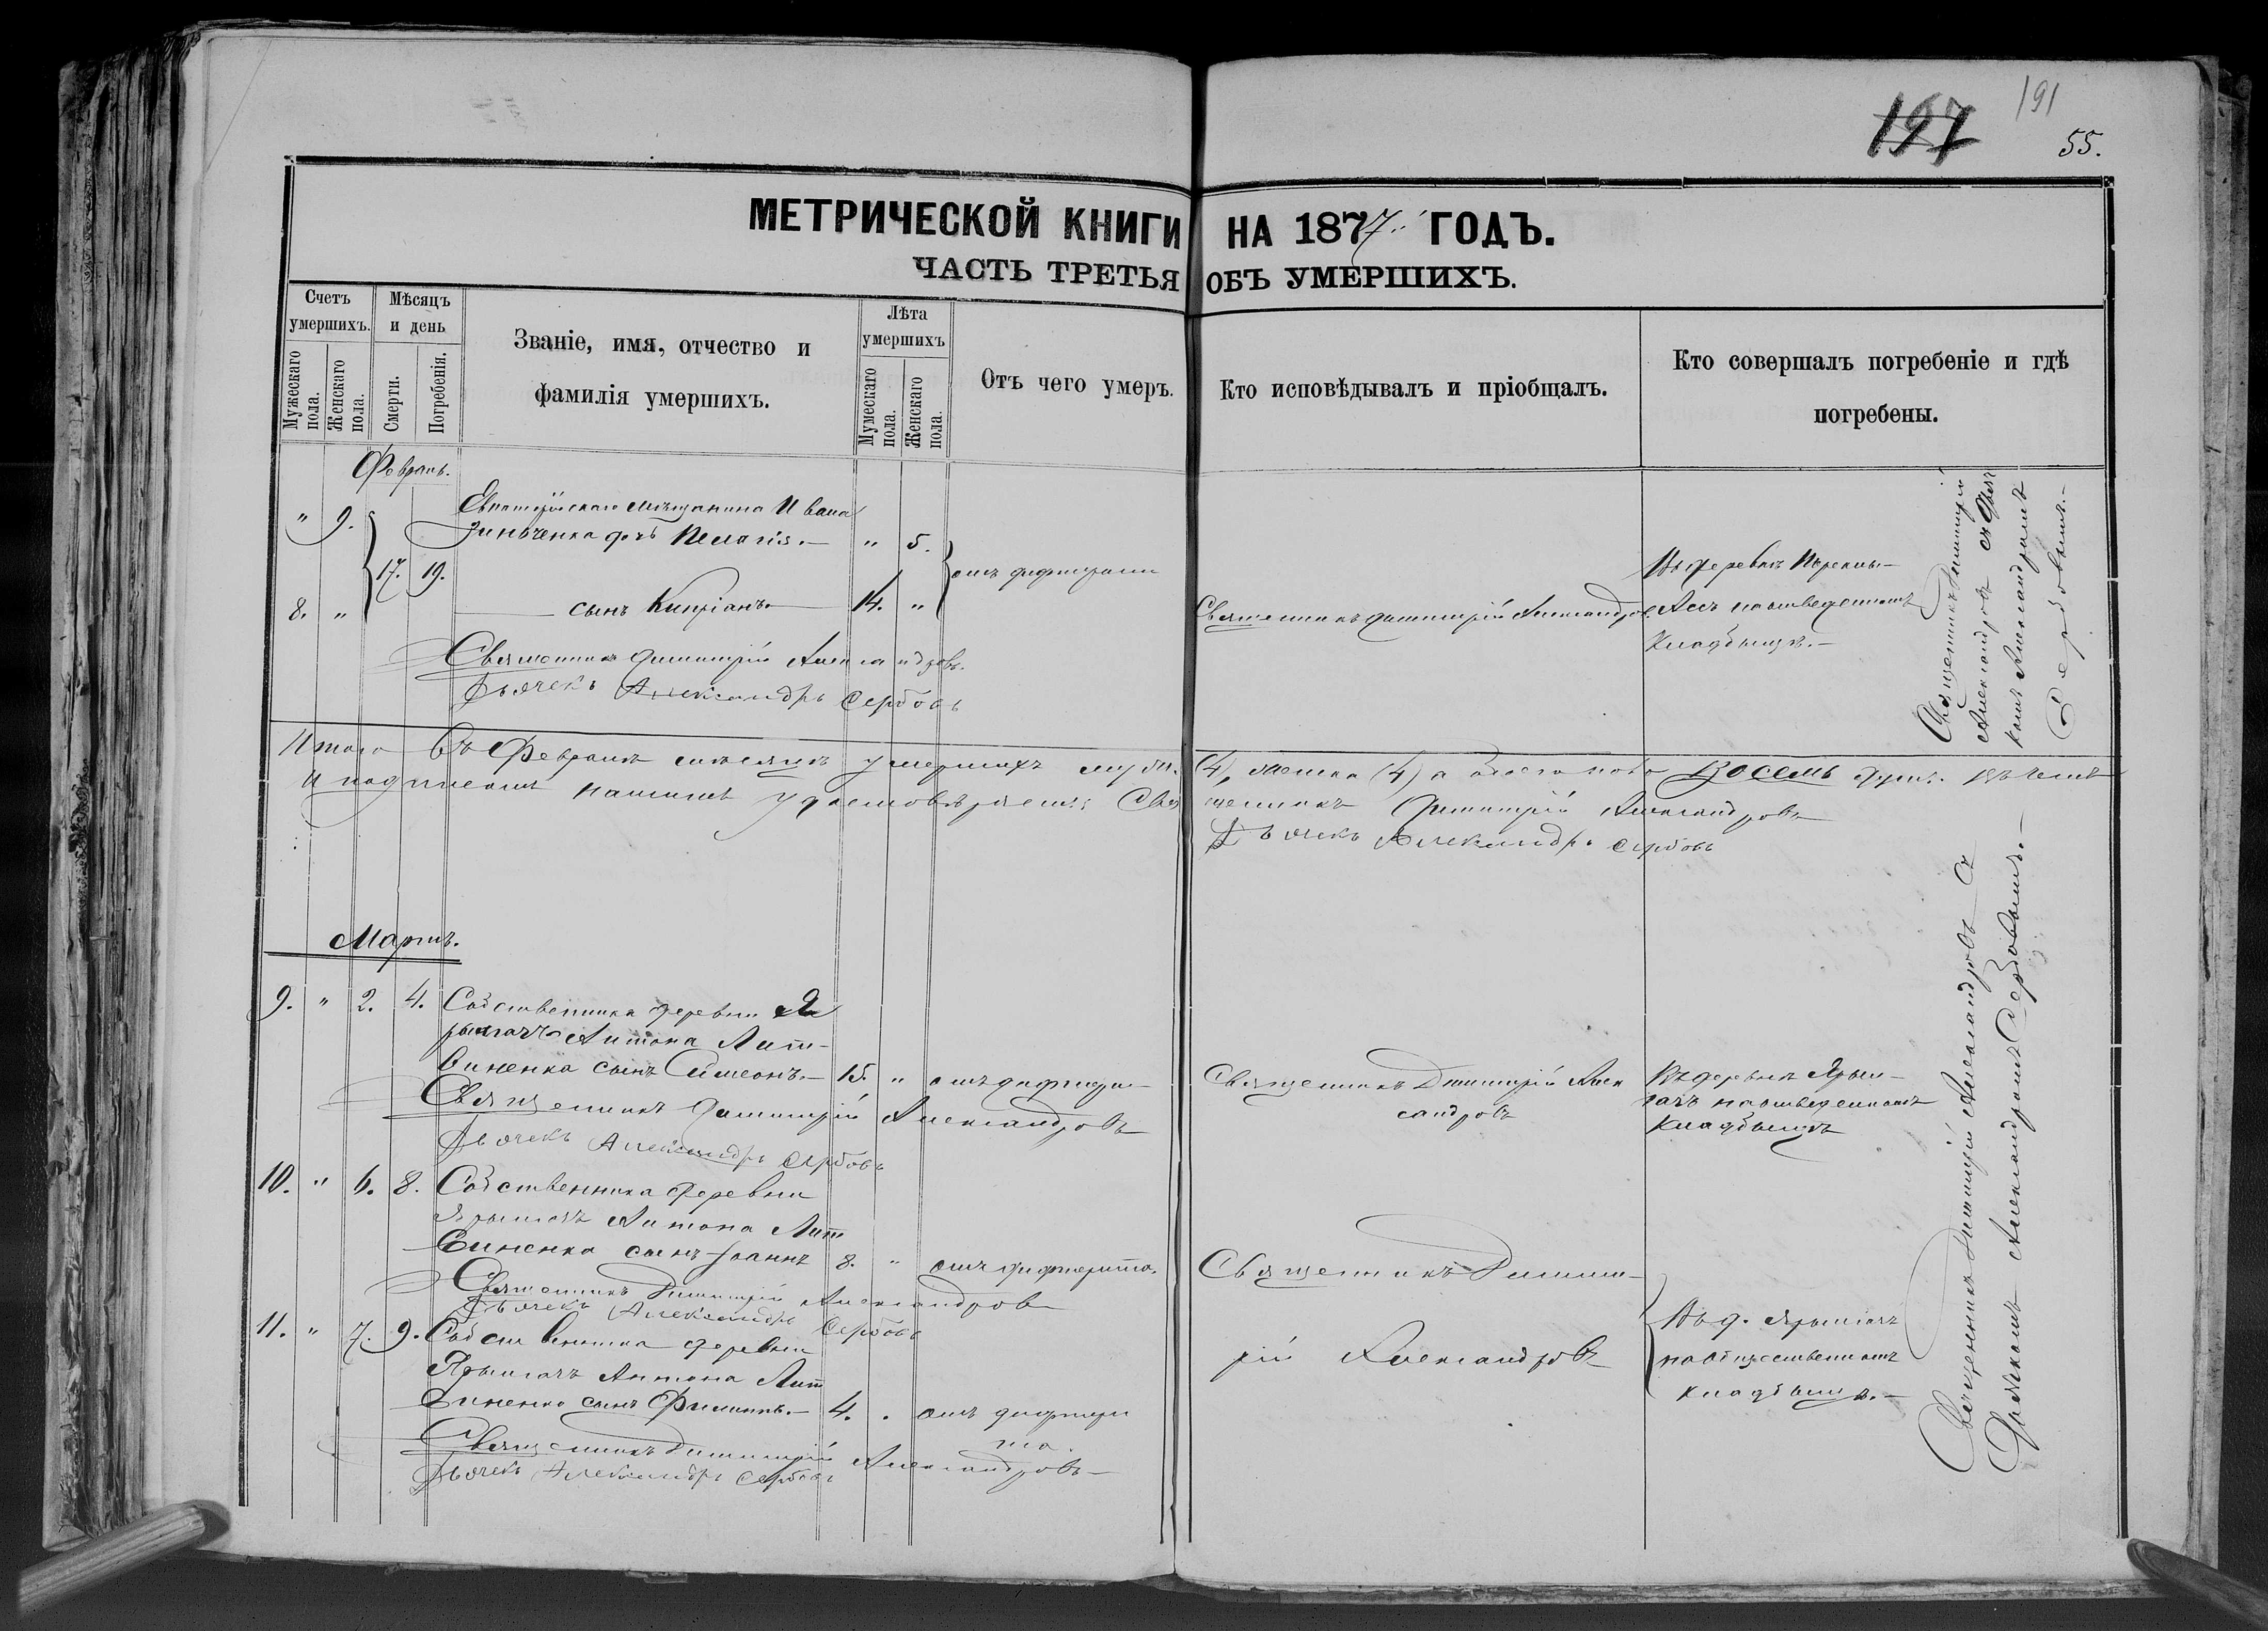 197 191
55.
МЕТРИЧЕСКОЙ КНИГИ НА 1877 ГОДЪ.
ЧАСТЬ ТРЕТЬЯ ОБЪ УМЕРШИХЪ.
Счетъ умершихъ.
Мужескаго пола.
Женскаго пола.
Мѣсяцъ и день
Смерти.
Погребенія.
Званіе, имя, отчество и
фамилія умершихъ.
Лѣта умершихъ
Мужескаго пола.
Женскаго пола.
Отъ чего умеръ.
Кто исповѣдывалъ и пріобщалъ.
Кто совершалъ погребеніе и гдѣ
погребены.
Февраль.
Евпаторійскаго мѣщанина Ивана
" 9. Зинченка дочь Пелагія.— " 5.
17. 19. отъ дифтерита
8. " сынъ Кипріанъ.— 14. "
Священникъ Димитрій Александров.
Въ деревнѣ
на отведенномъ
Кладбищѣ.—
Священникъ Димитрій Александровъ.
Дьячекъ Александръ Сербовъ
Священникъ Димитрій
Александровъ съ Дьяч
комъ Александромъ
Сербовымъ.—
Итого въ Февралѣ мѣсяцѣ умершихъ муж. (4), женска (4) а всего восемь душъ. Въ чемъ
и подписомъ нашимъ удостовѣряемъ: Священникъ Димитрій Александровъ
Дьячекъ Александръ Сербовъ
Мартъ.
9. " 2. 4. Собственника деревни Я
рылгачъ Антона Лит-
виненка сынъ Симеонъ.— 15. " отъ дифтери-
Священникъ Димитрій Алек
сандровъ
Въ деревнѣ Ярыл-
гачъ на отведенномъ
Кладбищѣ
Священникъ Димитрій Александровъ
Дьячекъ Александръ Сербовъ
10. " 6. 8. Собственника деревни
Ярылгачъ Антона Лит
виненка сынъ Іоаннъ 8. " отъ дифтерита.
Священникъ Димит-
Священникъ Димитрій Александровъ
Дьячекъ Александръ Сербовъ
11. " 7. 9. Собственника деревни
Ярылгачъ Антона Лит
виненка сынъ Филиппъ.— 4. " отъ дифтери
та.
рій Александровъ
Въ д. Ярылгачъ
на общественномъ
кладбищѣ.—
Священникъ Димитрій Александровъ
Дьячекъ Александръ Сербовъ
Священникъ Димитрій Александровъ съ
Дьячкомъ Александромъ Сербовымъ.—